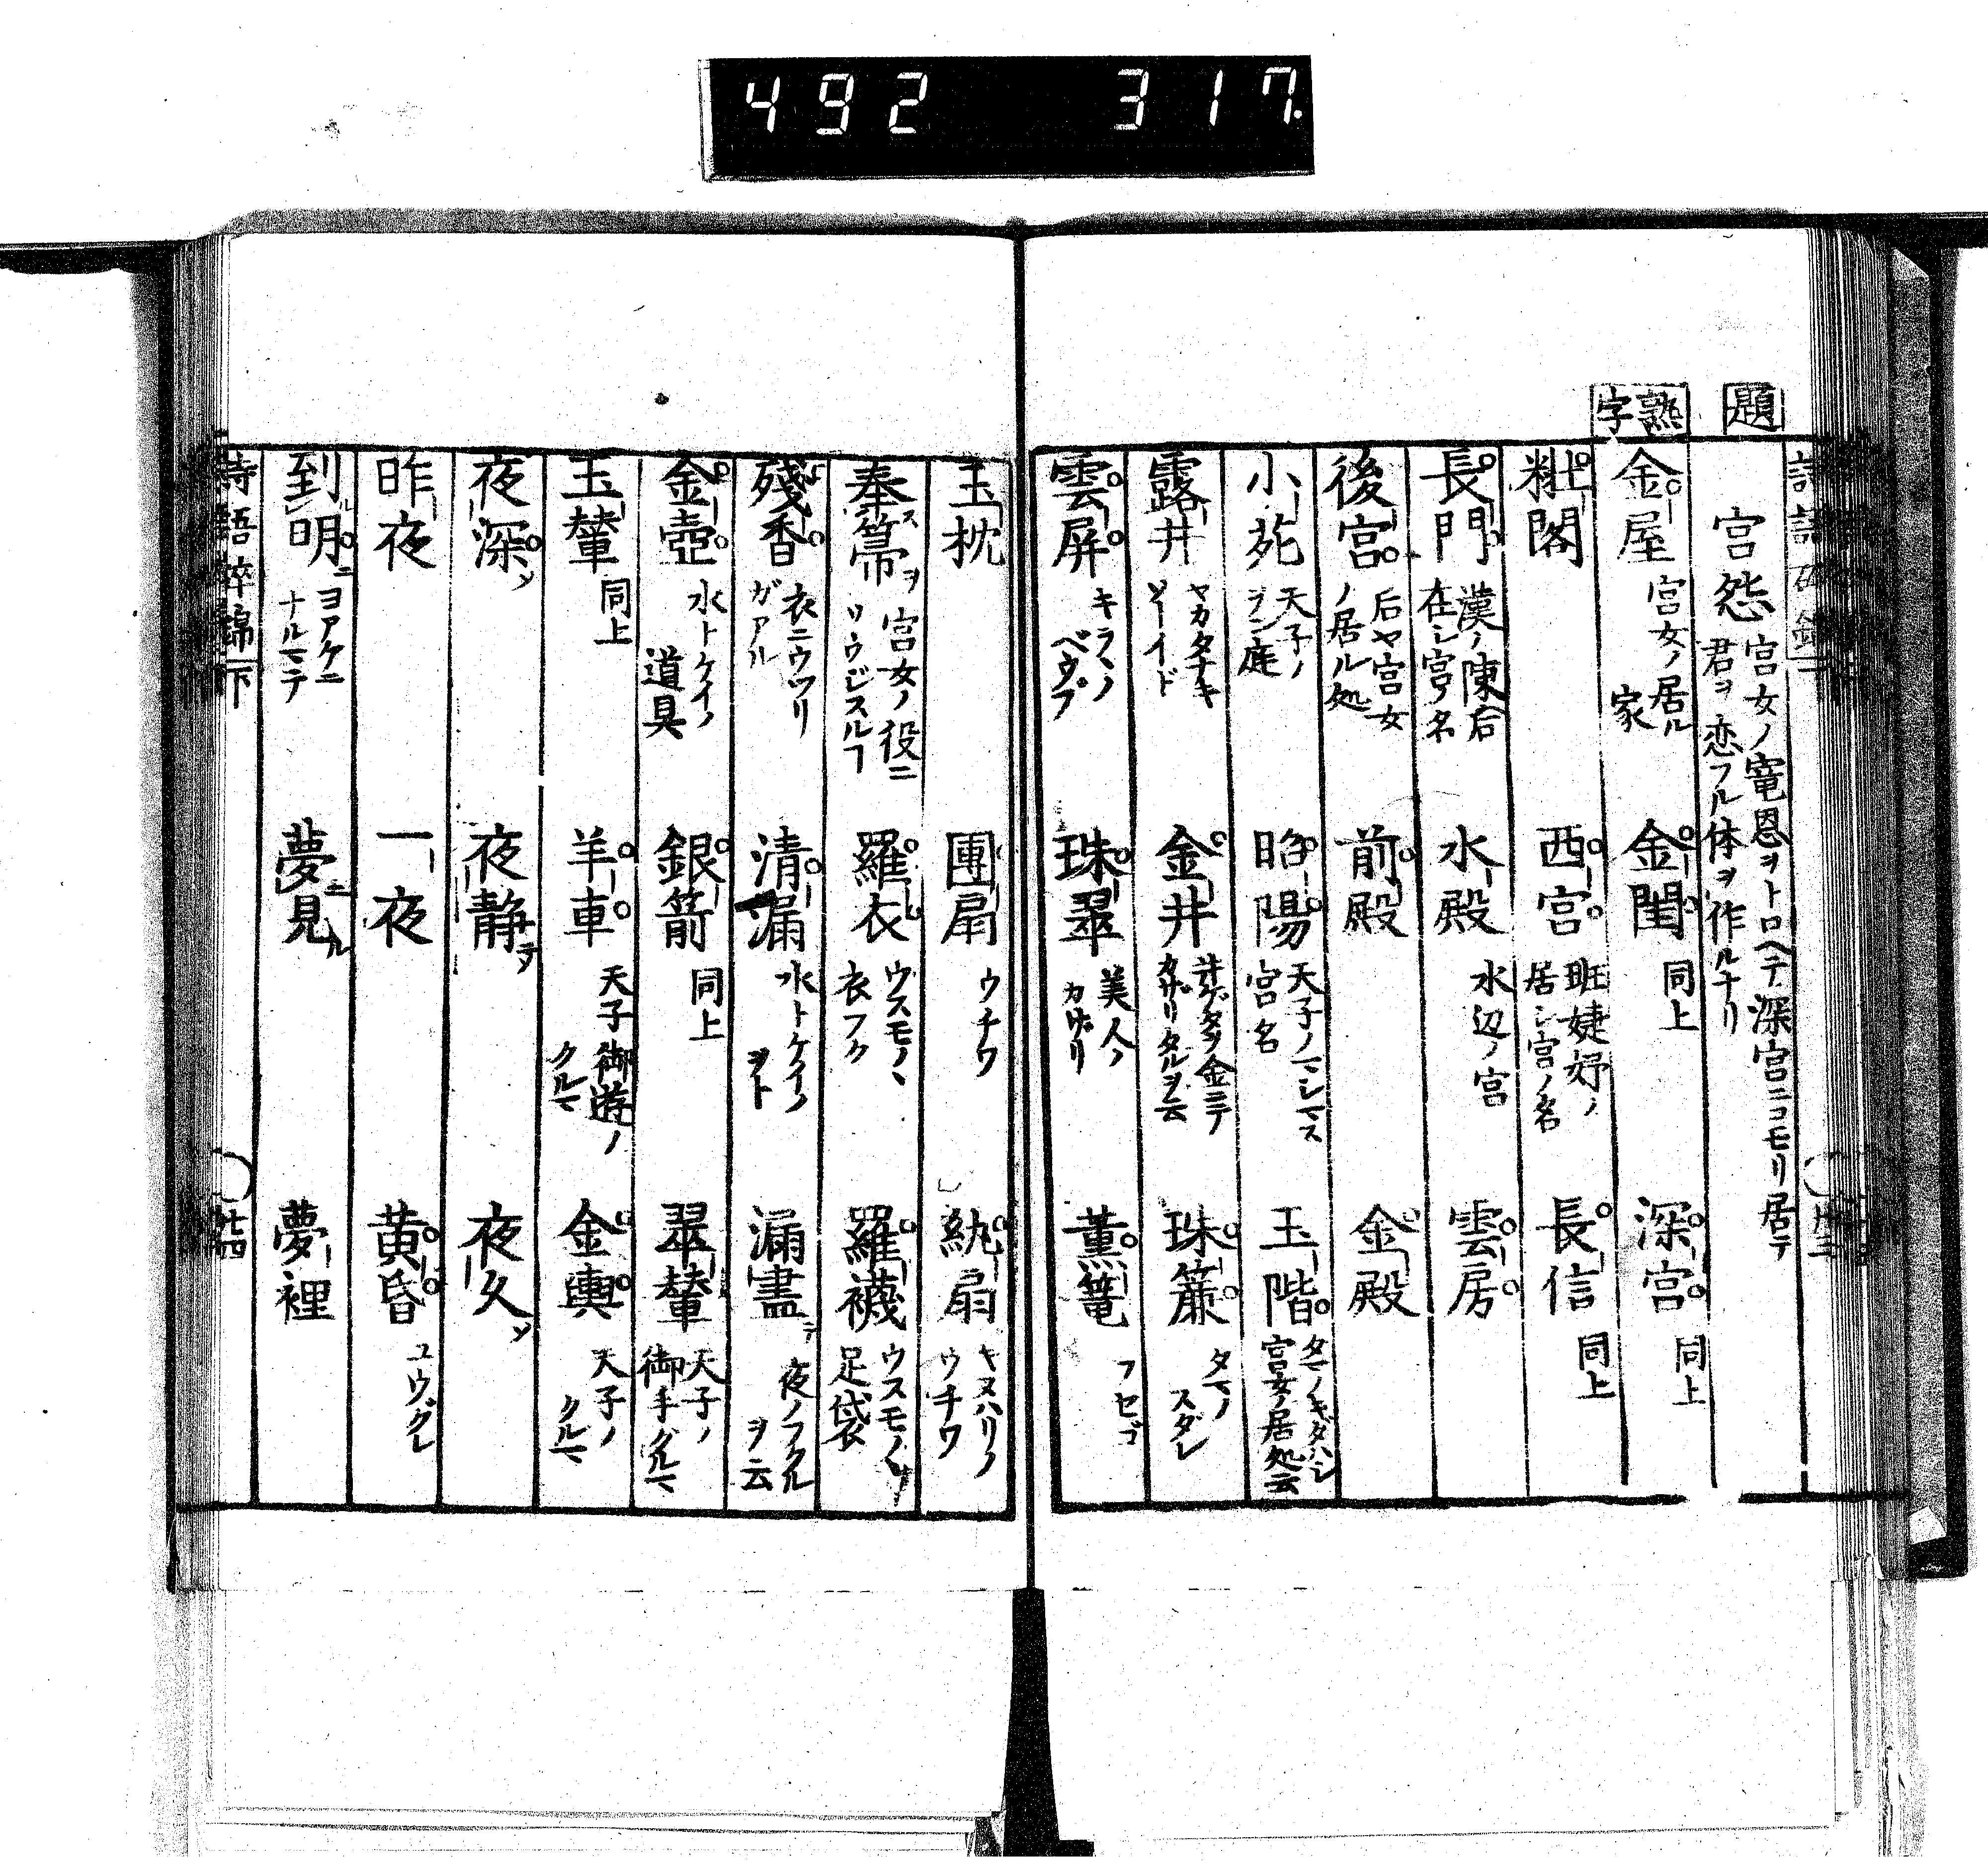 492 317
題
宮怨 宮女ノ寵恩ヲトロヘテ深宮ニコモリ居テ
君ヲ恋フル体ヲ作ルナリ
熟字
金屋 宮女ノ居ル家 金閨 同上 深宮 同上
粧閣 西宮 班婕妤ノ居シ宮ノ名 長信 同上
長門 漢ノ陳后在シ宮ノ名 水殿 水辺ノ宮 雲房
後宮 后ヤ宮女ノ居ル処 前殿 金殿
小苑 天子ノ庭 昭陽 天子ノマシマス宮名 玉階 タマノキダハシ宮女ノ居処云
露井 ヤカタナキ 金井 井ゲタヲ金ニテカザリタルヲ云 珠簾 タマノスダレ
雲屏 珠翠 美人ノカザリ 薫篭 フセゴ
玉枕 團扇 ウチワ 紈扇 キヌハリノウチワ
奉箒 宮女ノ役ニソウジスルヿ 羅衣 ウスモノヽ衣フク 羅襪 ウスモノヽ足袋
殘香 衣ニウツリガアル 清漏 水トケイノヲト 漏盡テ 夜ノフクルヲ云
金壺 水トケイノ道具 銀箭 同上 翠輦 天子ノ御手グルマ
玉輦 同上 羊車 天子御遊ノクルマ 金輿 天子ノクルマ
夜深 夜静 夜久
昨夜 一夜 黄昏 ユウグレ
到明 ヨアケニナルマテ 夢見 夢裡
詩語砕錦 下 廿四